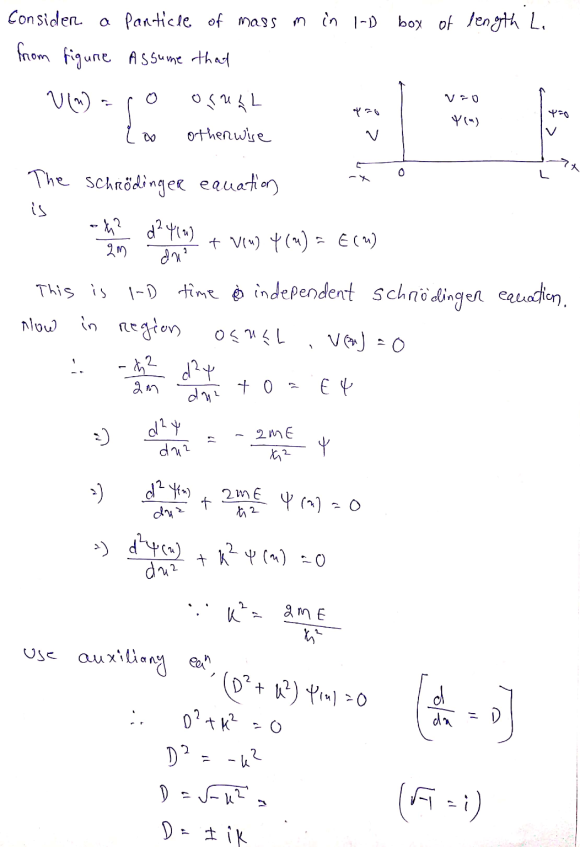 Consider a Particle of mass m in 1-D box of length L.
from figure Assume that
V(x) = { 0 0 ≤ x ≤ L
∞ otherwise
ψ=0 V=0 ψ=0
V ψ(x) V
-x 0 L x
The schrödinger equation
is
-ħ²/2m d²ψ(x)/dx² + V(x) ψ(x) = E(x)
This is 1-D time independent schrödinger equation.
Now in region 0≤x≤L, V(x) = 0
∴ -ħ²/2m d²ψ/dx² + 0 = Eψ
⇒) d²ψ/dx² = - 2mE/ħ² ψ
⇒) d²ψ(x)/dx² + 2mE/ħ² ψ(x) = 0
⇒) d²ψ(x)/dx² + k² ψ(x) = 0
∵ k² = 2mE/ħ²
Use auxiliary eqn,
(D² + k²) ψ(x) = 0 [d/dx = D]
∴ D² + k² = 0
D² = -k²
D = √-k² , (√-1 = i)
D = ± ik